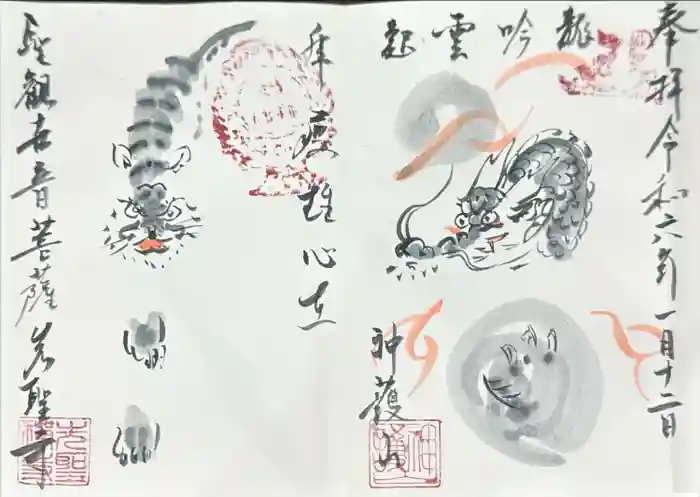 奉拝 令和六年一月十二日
龍吟雲起
神護山
雄心在
聖観世音菩薩 先聖寺